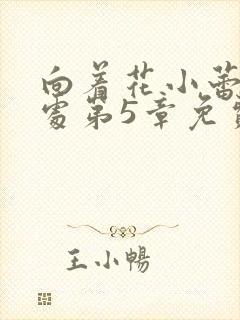 向着花小蕾
处第5章免费
王小暢